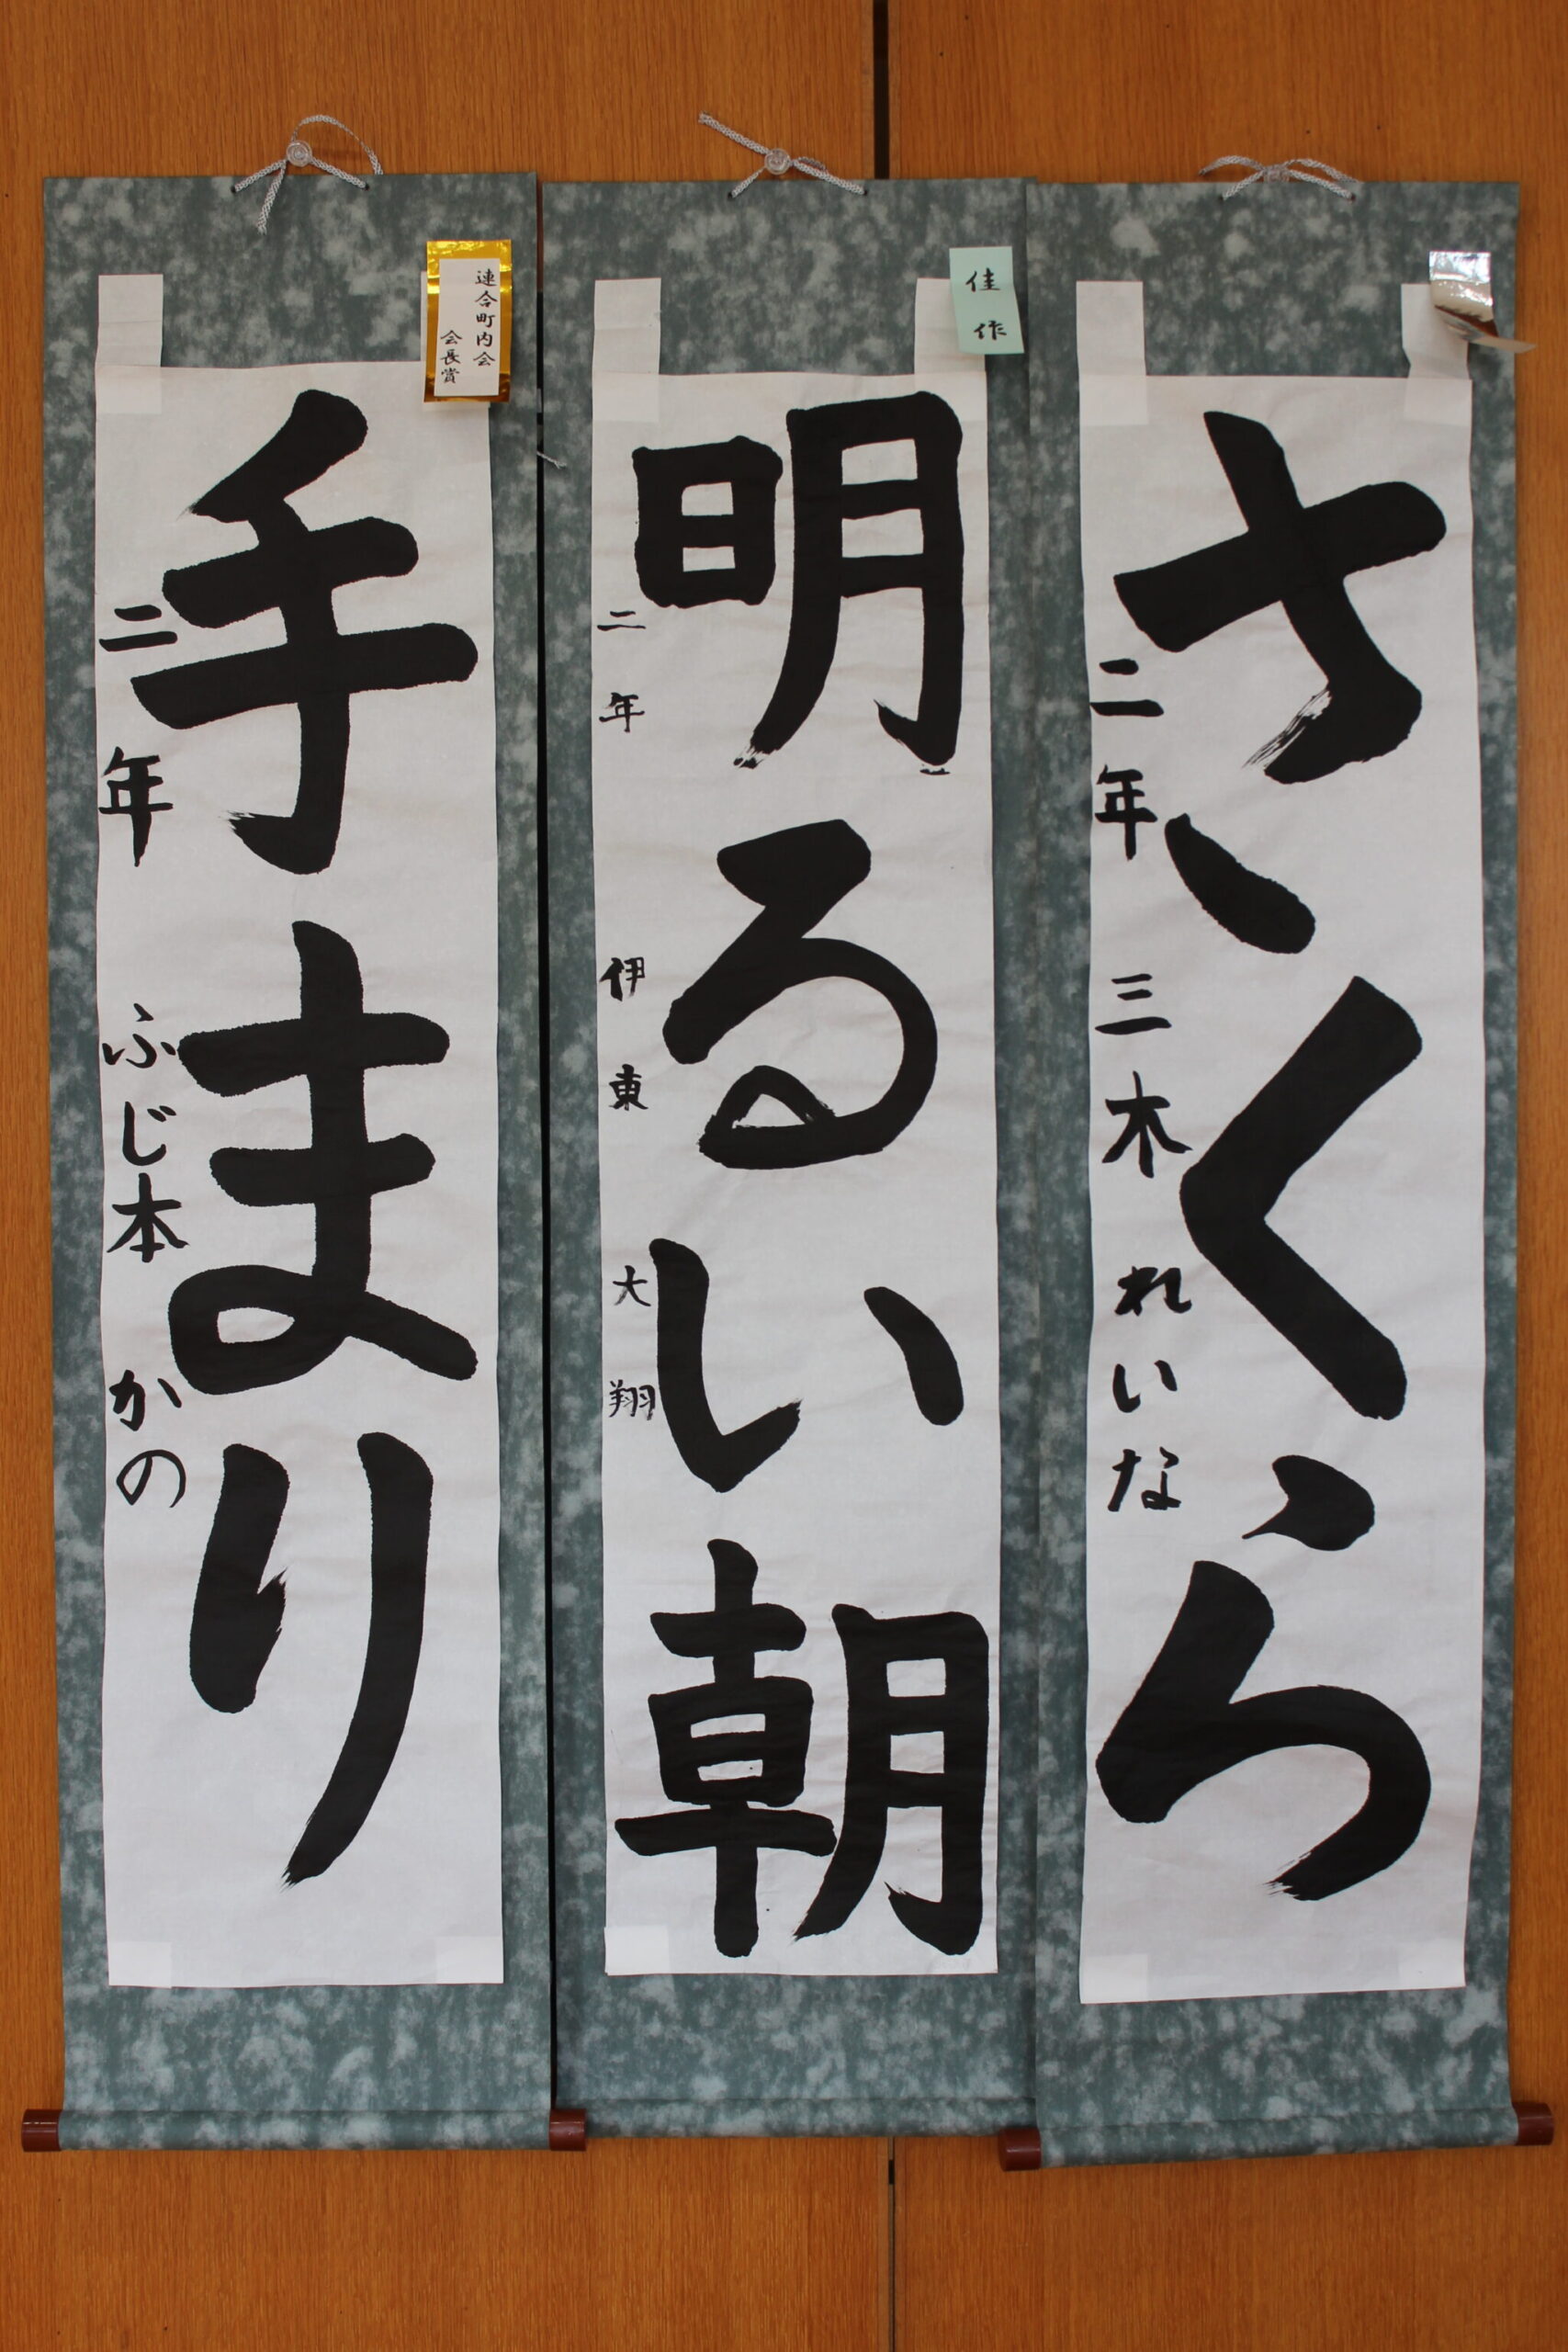 さくら
二年 三木 れいな
佳作
明るい朝
二年 伊東 大翔
連合町内会
会長賞
手まり
二年 ふじ本 かの